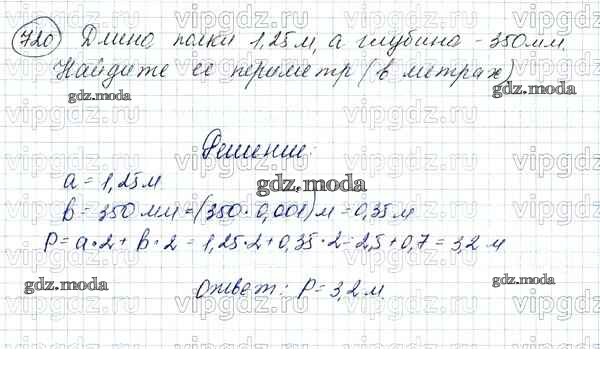 720 Длина полки 1,25 м, а глубина - 350 мм.
Найдите ее периметр (в метрах)
gdz.moda
gdz.moda
Решение:
a = 1,25 м
gdz.moda
b = 350 мм = (350 · 0,001) м = 0,35 м
P = a · 2 + b · 2 = 1,25 · 2 + 0,35 · 2 = 2,5 + 0,7 = 3,2 м
Ответ: P = 3,2 м.
gdz.moda
gdz.moda